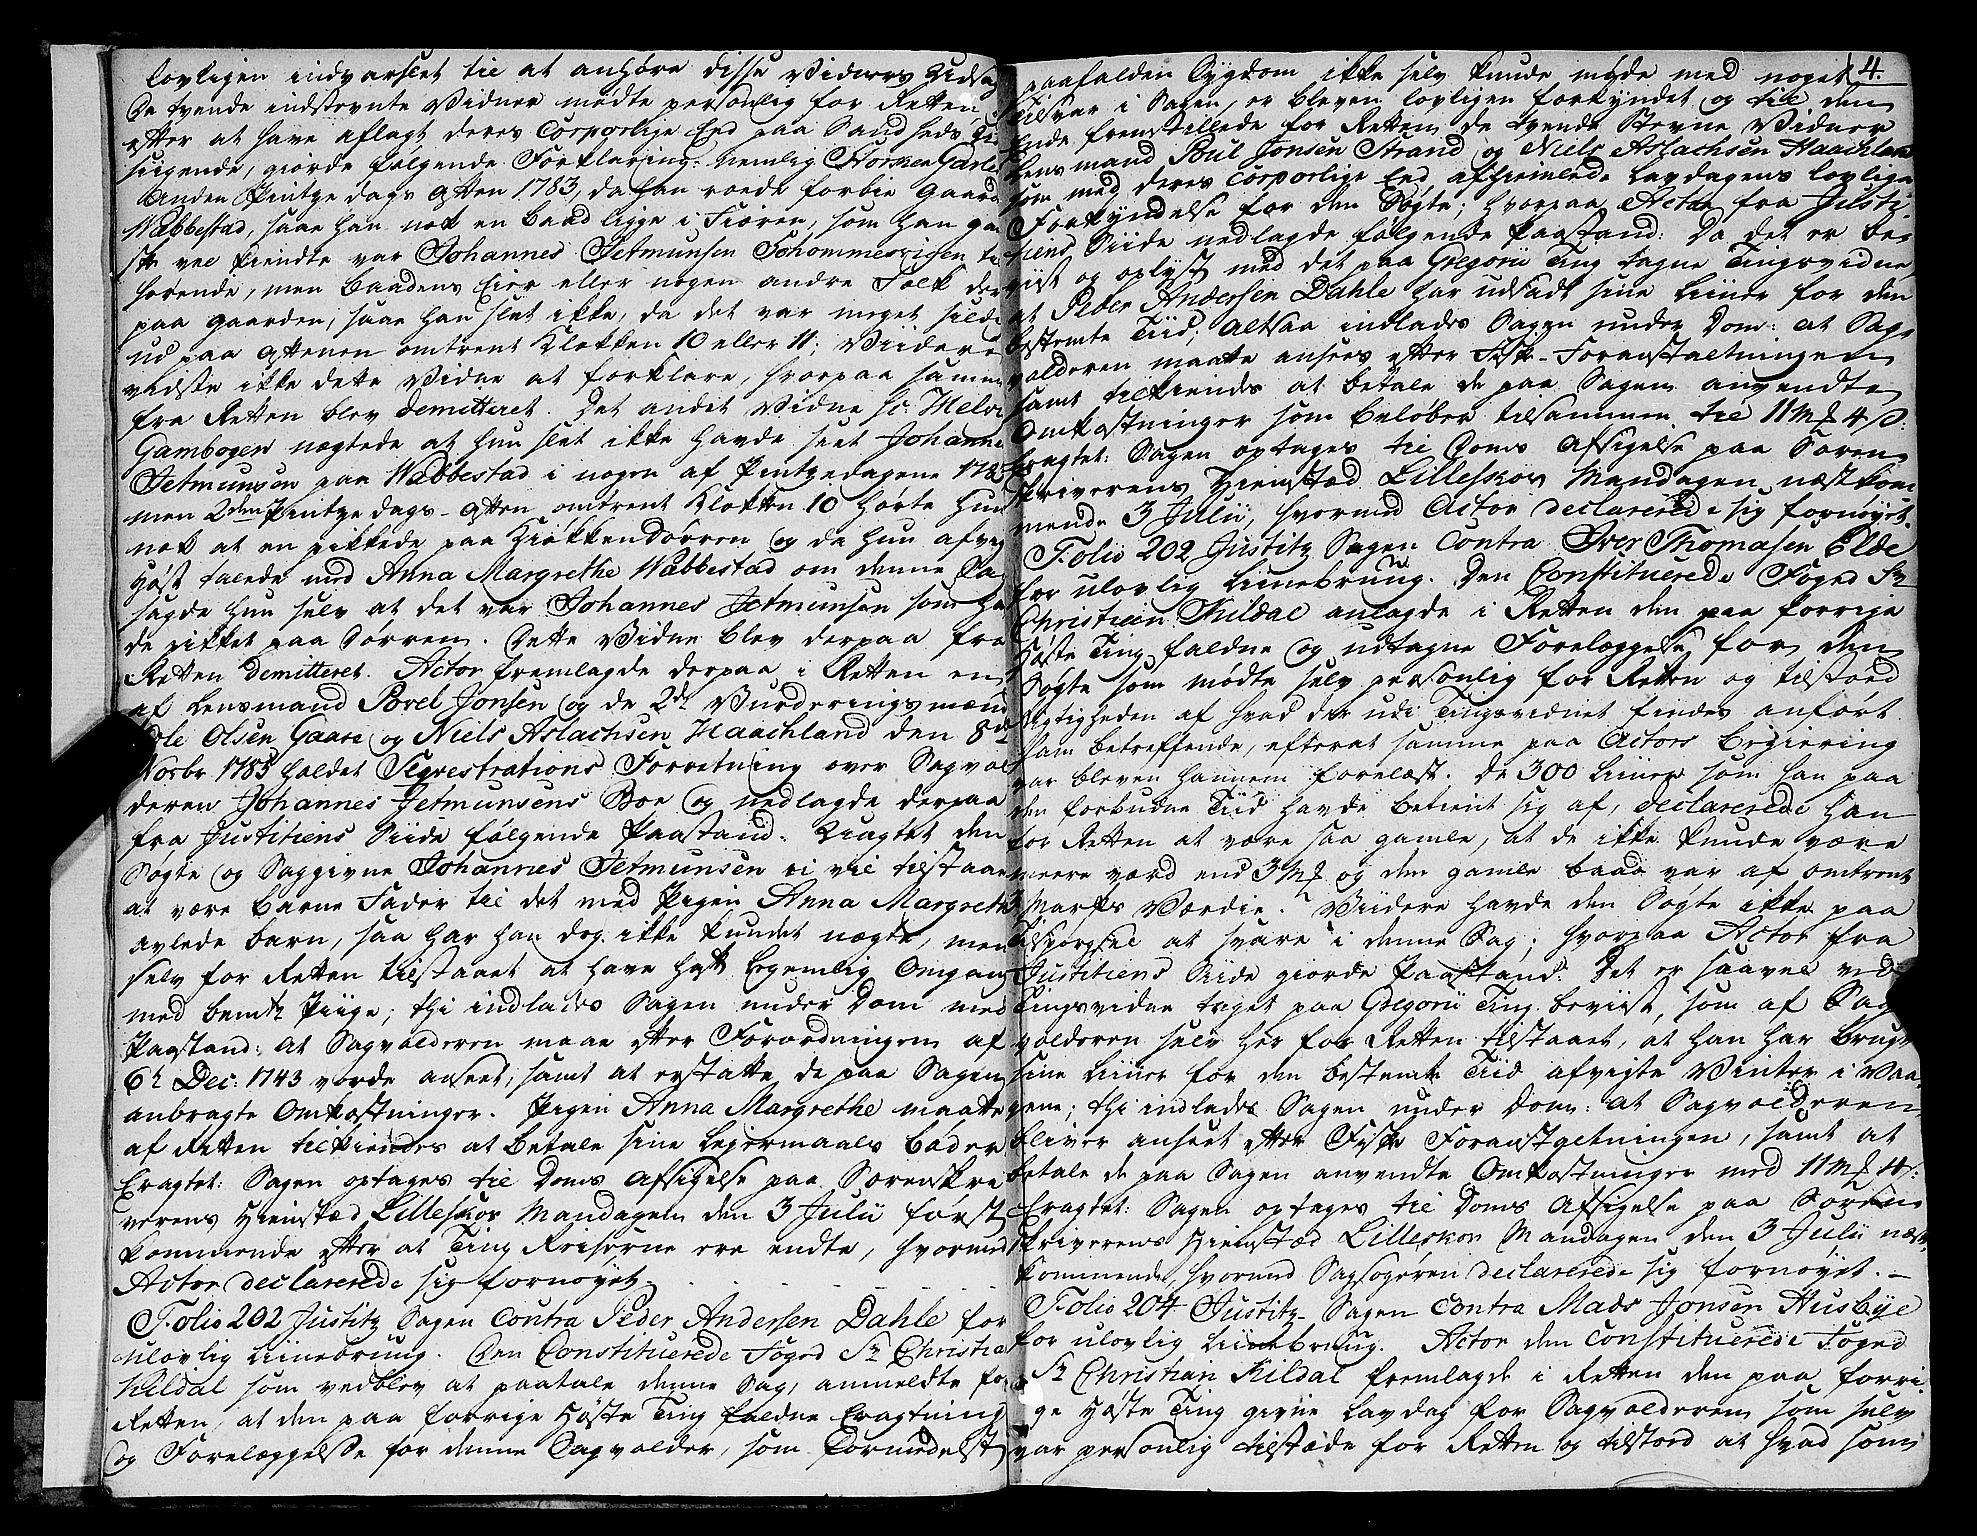 lovligen indvarslet til at anhøre disse Vidners Udsagn
De tvende indstevnte Vidner mødte personlig for Retten
efter at have aflagt deres Corporlige Eed paa Sandheds Ud
sigende, giorde følgende Forklaring: nemlig
Anden Pintze dags Aften 1783, da han roede forbie Gaarden
Wæbbestad, saae han nok en Baad ligge i Fiæren, som han gan
ske vel kiendte var Johannes Jetmunsen Tohommesvigen til
hørende, men Baadens Eier eller nogen andre Folk der
paa Gaarden, saae han slet ikke, da det var meget silde
ud paa Aftenen omtrent Klokken 10 eller 11; Viidere
vidste ikke dette Vidne at forklare, hvorpaa samme
fra Retten blev demitteret. Det andet Vidne
Gambogen nægtede at hun slet ikke havde seet Johannes
Jetmunsen paa Wæbbestad i nogen af Pintzedagene 1783
men 2den Pintze dags-Aften omtrent Klokken 10 hørte hun
nok at en pikkede paa Kiøkkendørren og da hun afvigte
Høst talede med Anna Margrethe Wæbbestad om denne Sag
sagde hun selv at det var Johannes Jetmunsen som hav
de pikket paa Dørren. Dette Vidne blev derpaa fra
Retten demitteret. Actor fremlagde derpaa i Retten en
af Lensmand Povel Jonsen og de 2de Vurderingsmænd
Ole Olsen Gaare og Niels Aslachsen Haachland den 8de
Novbr 1783 holdet Seqvestrations Forretning over Sagvol
deren Johannes Jetmunsens Boe og nedlagde derpaa
fra Justitiens Siide følgende Paastand: Uagtet den
Søgte og Saggivne Johannes Jetmunsen ei vil tilstaae
at være Barne Fader til det med Pigen Anna Margrethe
avlede Barn, saa har han dog ikke kundet nægte, men
selv for Retten tilstaaet at have havt Legemlig Omgang
med bemte Piige; thi indlades Sagen under Dom med
Paastand: at Sagvolderen maae efter Forordningen af
6te Dec: 1743 vorde anseet, samt at erstatte de paa Sagen
anbragte Omkostninger. Pigen Anna Margrethe maatte
af Retten tilkiendes at betale sine Leiermaals Bøder
Eragtet: Sagen optages til Doms Afsigelse paa Sorenskri
verens Hiemstæd Lilleskov Mandagen den 3 Julii først
kommende efter at Ting Reiserne ere endte, hvormed
Actor declarerede sig fornøyet.
Folio 202 Justitz Sagen Contra Peder Andersen Dahle for
ulovlig Liinebrug. Den Constituerede Foged Sr Christian
Kildal som vedblev at paatale denne Sag, anmeldte for
Retten, at den paa forrige Høste Ting faldne Eragtning
og Forelæggelse for denne Sagvolder, som formedelst
4.
paafalden Sygdom ikke selv kunde møde med noget
Tilsvar i Sagen, er bleven lovligen forkyndet og til den
Ende fremstillede for Retten de tvende Stevne Vidner
Lensmand Poul Jonsen Strand og Niels Aslachsen Haachland
som med deres Corporlige Eed afhiemlede Lavdagens lovlige
Forkyndelse for den Søgte; hvorpaa Actor fra Justi-
tiens Siide nedlagde følgende Paastand: Da det er be-
viist og oplyst med det paa Gregorii Ting tagne Tingsvidne
at Peder Andersen Dahle har udsadt sine Liiner for den
bestemte Tiid; Altsaa indlades Sagen under Dom: at Sag-
volderen maatte ansees efter Fisk-Foranstaltningen
samt tilkiendes at betale de paa Sagen anvendte
Omkostninger som beløber tilsammen til 11 mk 4 s.
Eragtet: Sagen optages til Doms Afsigelse paa Soren-
skriverens Hiemstæd Lilleskov Mandagen næstkom
mende 3 Julii, hvormed Actor declarerede sig fornøyet.
Folio 202 Justitz Sagen Contra Iver Thomæsen Elde
for ulovlig Liinebrug. Den Constituerede Foged Sr
Christian Kildal anlagde i Retten den paa forrige
Høste Ting faldne og udtagne Forelæggelse for den
Søgte som mødte selv personlig for Retten og tilstoed
Rigtigheden af hvad der udi Tingsvidnet findes anført
ham betreffende, efterat samme paa Actors Begiering
var bleven hannem forelæst. De 300 Liiner som han paa
den forbudne Tiid havde betient sig af, declarerede han
for Retten at være saa gamle, at de ikke kunde være
meere værd end 3 mk og den gamle Baad var af omtrent
3 Marks Værdie. Viidere havde den Søgte ikke paa
Tilspørgsel at svare i denne Sag; hvorpaa Actor fra
Justitiens Siide giorde Paastand: Det er saavel ved
Tingsvidne taget paa Gregorii Ting beviist, som af Sag
volderen selv her for Retten tilstaaet, at han har brugt
sine Liiner for den bestemte Tiid afvigte Vinter i Vaa
gene; thi indlades Sagen under Dom: at Sagvolderen
bliver anseet efter Fiske Foranstaltningen, samt at
betale de paa Sagen anvendte Omkostninger med 11 mk 4 s.
Eragtet: Sagen optages til Doms Afsigelse paa Soren
skriverens Hiemstæd Lilleskov Mandagen den 3 Julii næst
kommende, hvormed Sagsøgeren declarerede sig fornøyet. -
Folio 204 Justitz-Sagen Contra Mads Jonsen Husbye
for ulovlig Liinebrug. Actor den Constituerede Foged
Sr Christian Kildal fremlagde i Retten den paa forri
ge Høste Ting givne Lavdag for Sagvolderen som selv
var personlig tilstæde for Retten og tilstoed at hvad som